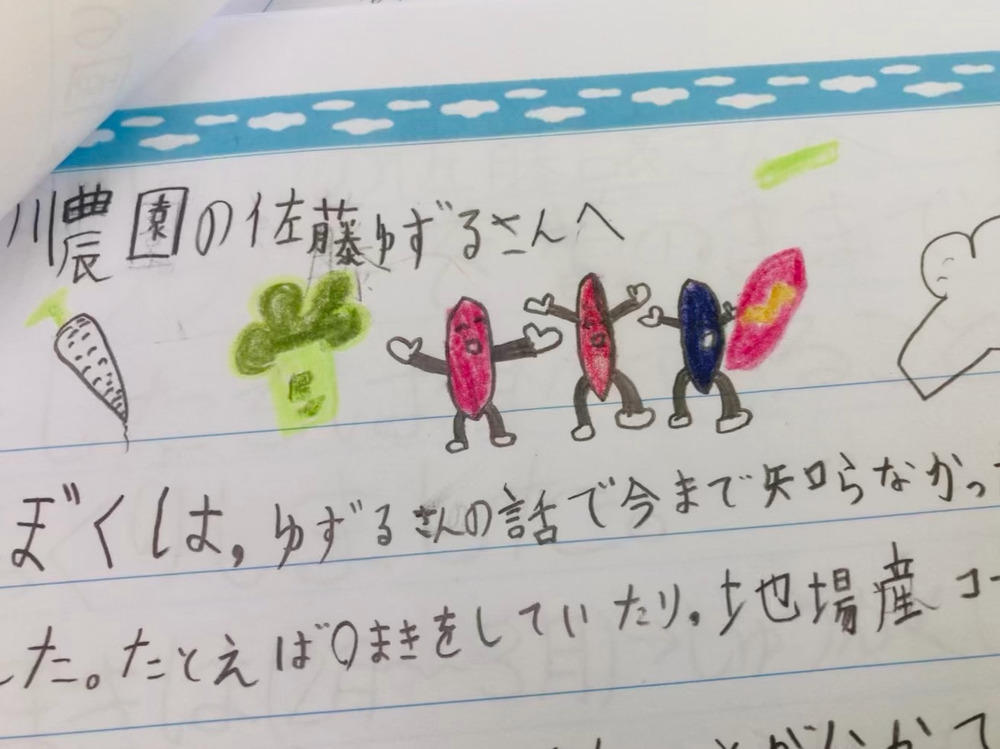 川農園の佐藤ゆずるさんへ
ぼくは,ゆずるさんの話で今まで知らなかっ
した。たとえば〇まきをしていたり,地場産コー